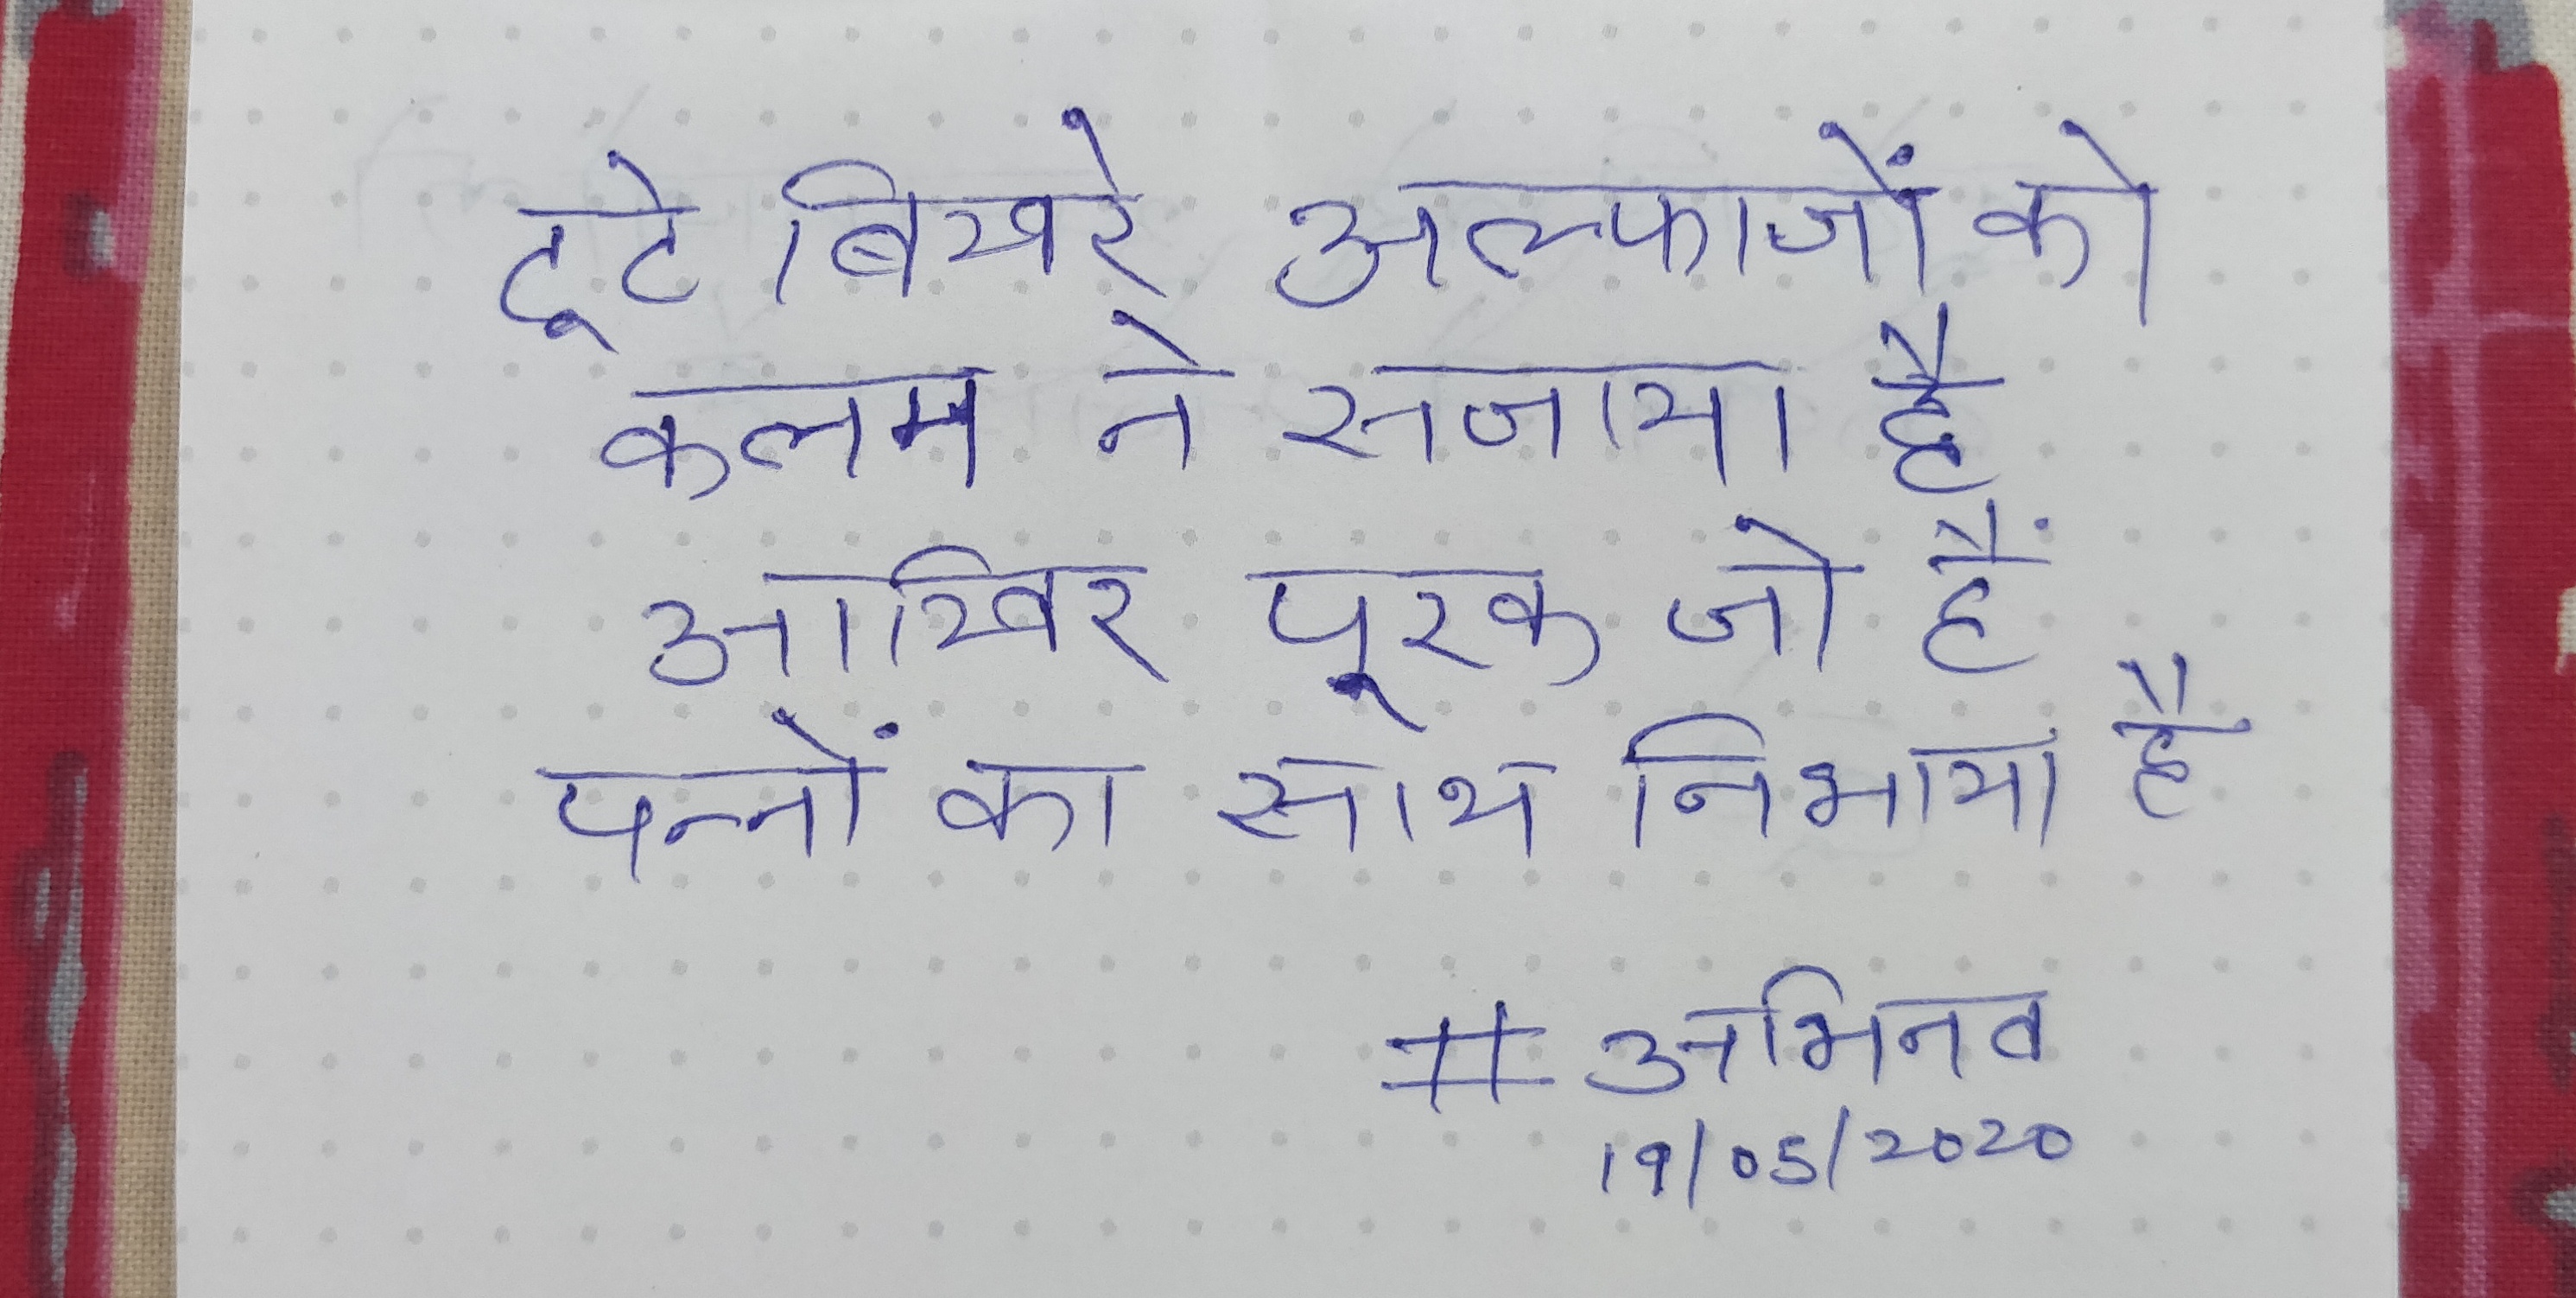 टूटे बिखरे अल्फाजों को
कलम ने सजाया है
आखिर पूरक जो हैं
पन्नों का साथ निभाया है
# अभिनव
19/05/2020